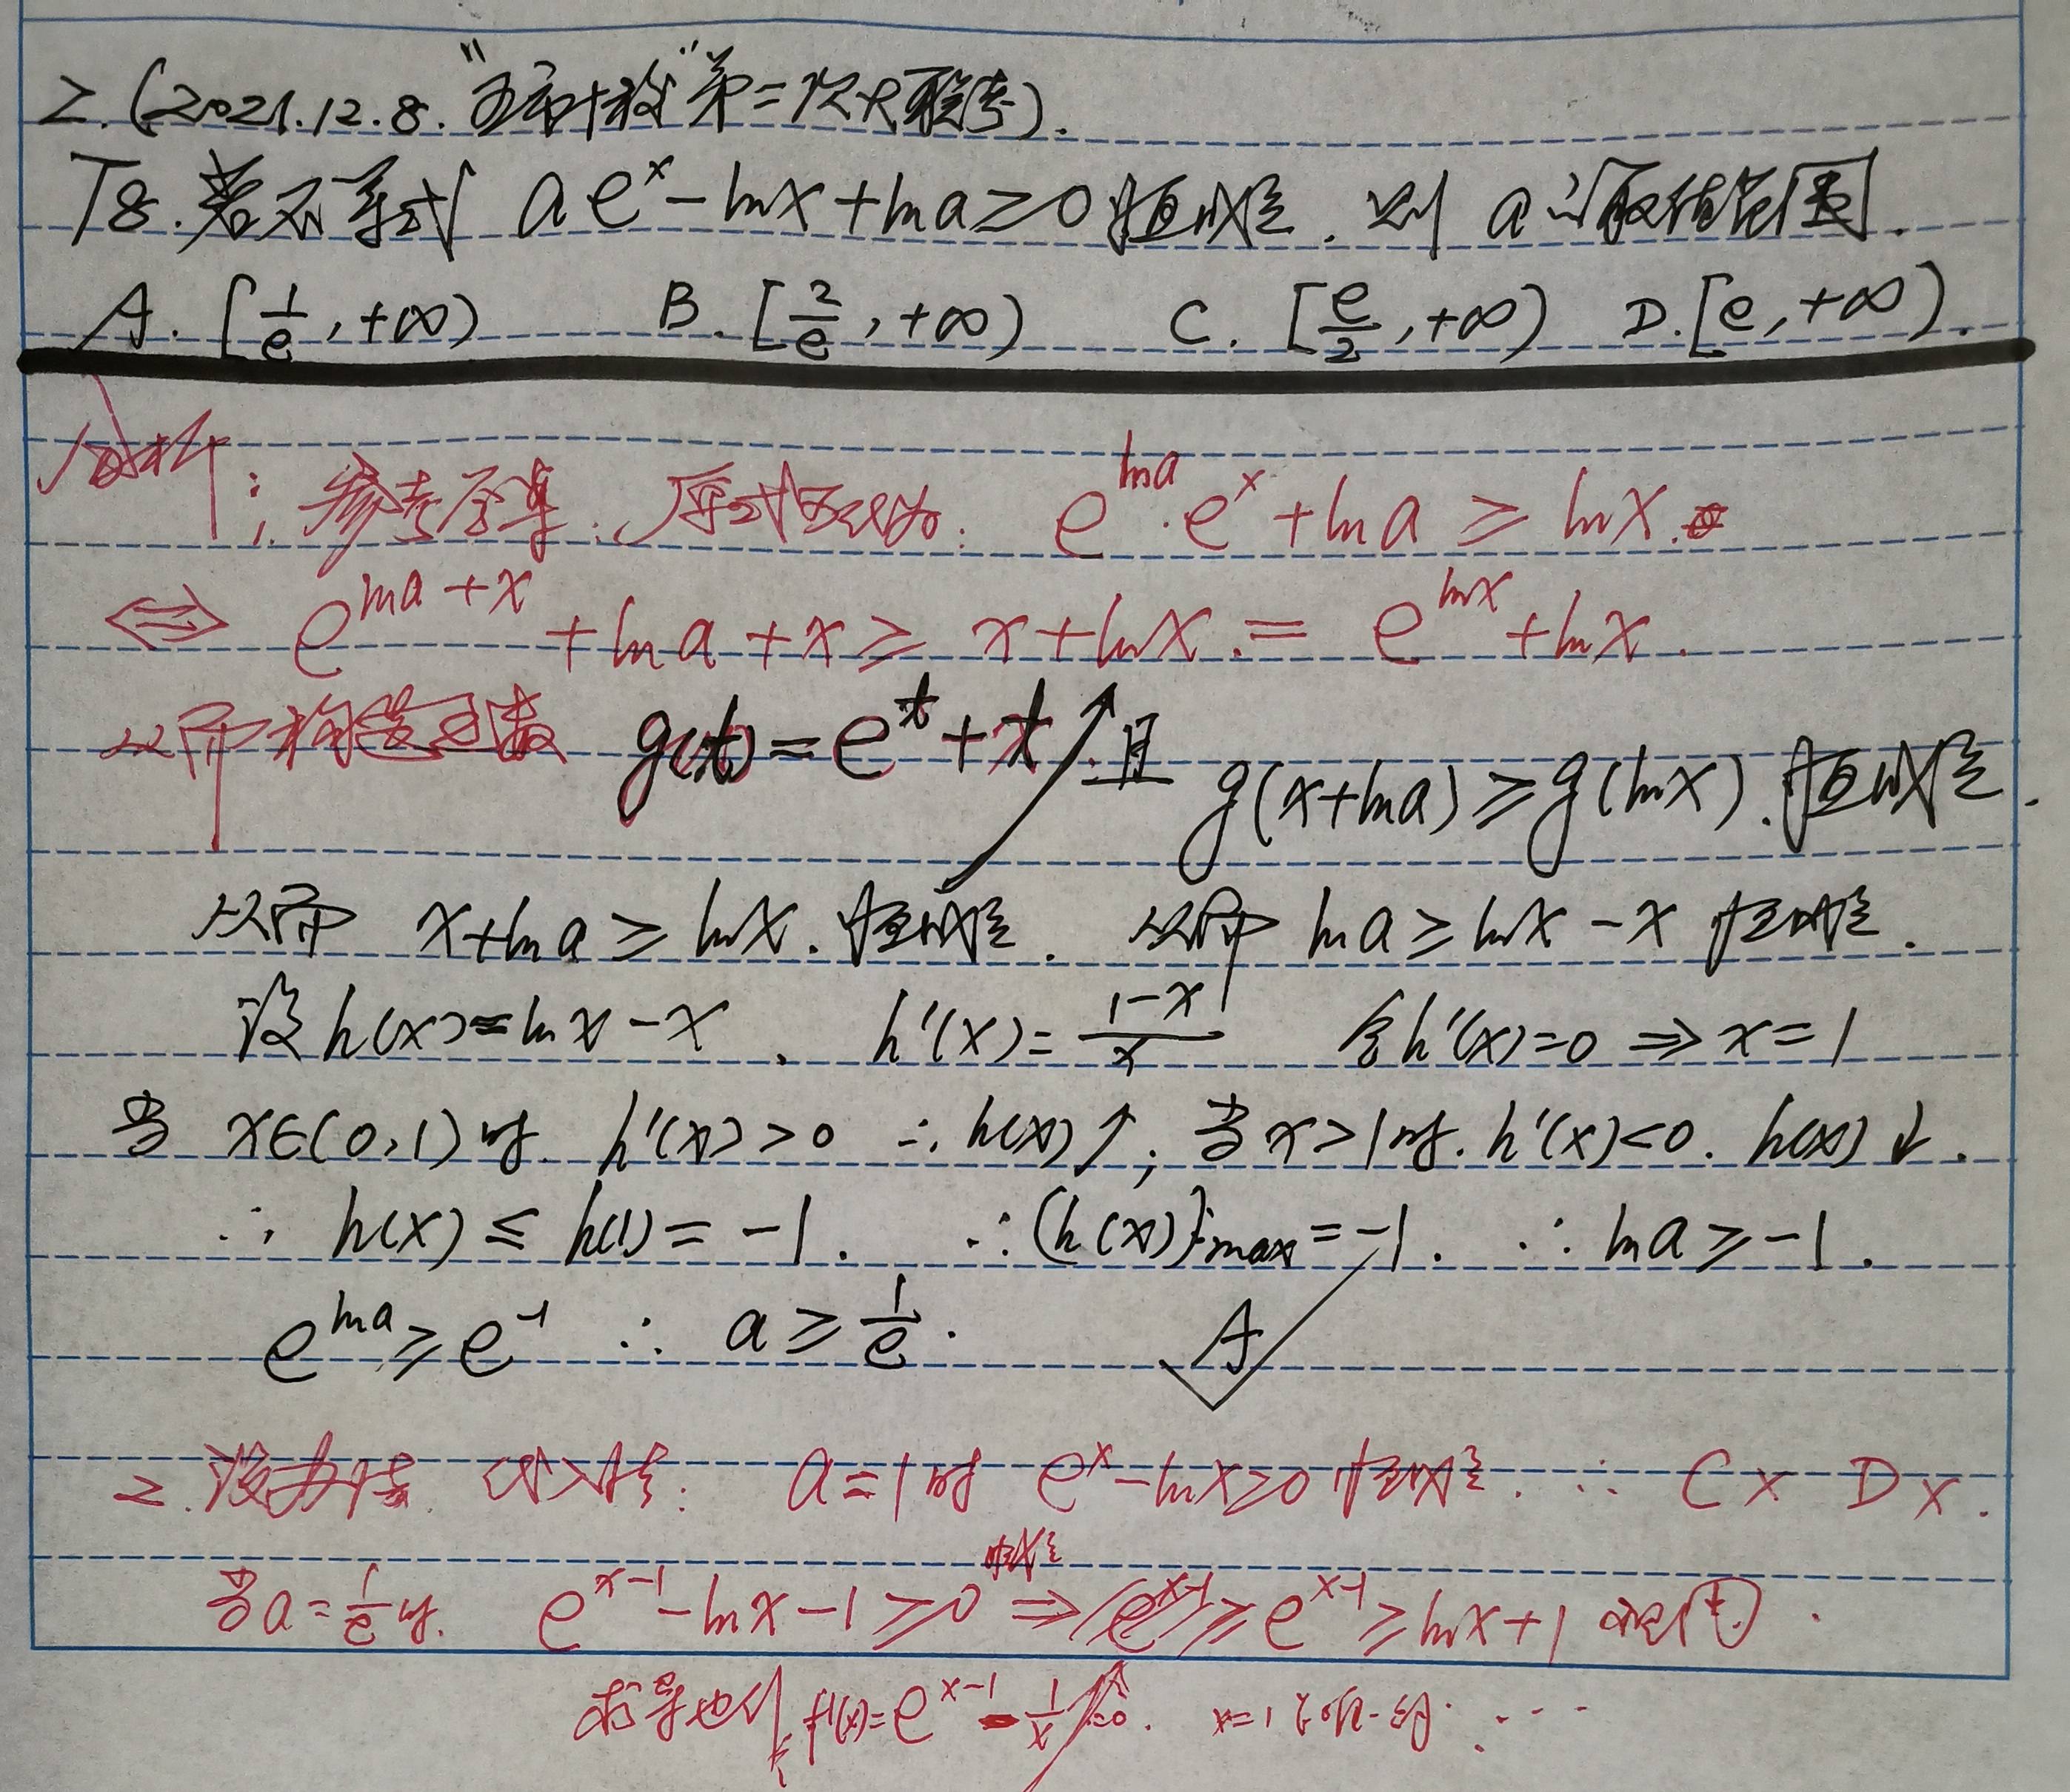 2.(2021.12.8."五市十校"第二次大联考).
T8.若不等式 ae^x-lnx+lna≥0恒成立.则 a的取值范围.
A.[1/e,+∞) B.[2/e,+∞) C.[e/2,+∞) D.[e,+∞).
解析:参考答案:原式可以为: e^lna·e^x+lna≥lnx.
⇔ e^(lna+x)+lna+x≥x+lnx.=e^lnx+lnx.
从而构造函数 g(t)=e^t+t↗.且 g(x+lna)≥g(lnx).恒成立.
从而 x+lna≥lnx.恒成立. 从而 lna≥lnx-x 恒成立.
设h(x)=lnx-x. h'(x)=(1-x)/x 令h'(x)=0⇒x=1
当 x∈(0,1)时. h'(x)>0 ∴h(x)↑;当x>1时.h'(x)<0.h(x)↓.
∴h(x)≤h(1)=-1. ∴(h(x))max=-1. ∴lna≥-1.
e^lna≥e^-1 ∴a≥1/e. A
2.没办法 代入法: a=1时 e^x-lnx>0恒成立. ∴ C× D×.
当a=1/e时. e^(x-1)-lnx-1≥0 ⇒ e^(x-1)≥lnx+1
成立
求导也行 f'(x)=e^(x-1)-1/x=0. x=1是唯一的.…